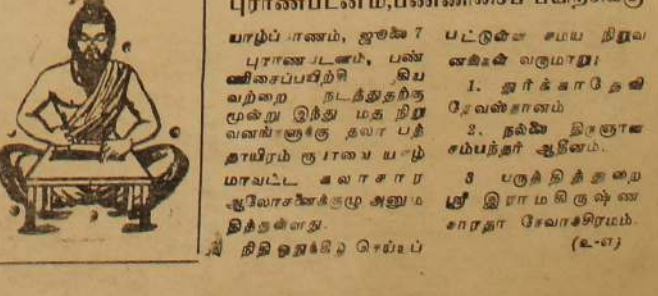 புராணபடனம், பண்ணிசைப்
யாழ்ப்பாணம், ஜூலை 7
புராணபடனம், பண்
ணிசைப்பயிற்சி கிய
வற்றை நடத்துதற்கு
மூன்று இந்து மத நிறு
வனங்களுக்கு தலா பத்
தாயிரம் ரூபாவை யாழ்
மாவட்ட கலாசார
ஆலோசனைக்குழு அனும
தித்துள்ளது.
நிதி ஒதுக்கீடு செய்யப்
பட்டுள்ள சமய நிறுவ
னங்கள் வருமாறு:
1. துர்க்காதேவி
தேவஸ்தானம்
2. நல்லை திருஞான
சம்பந்தர் ஆதீனம்.
3 பருத்தித்துறை
ஸ்ரீ இராமகிருஷ்ண
சாரதா சேவாச்சிரமம்.
(உ-எ)